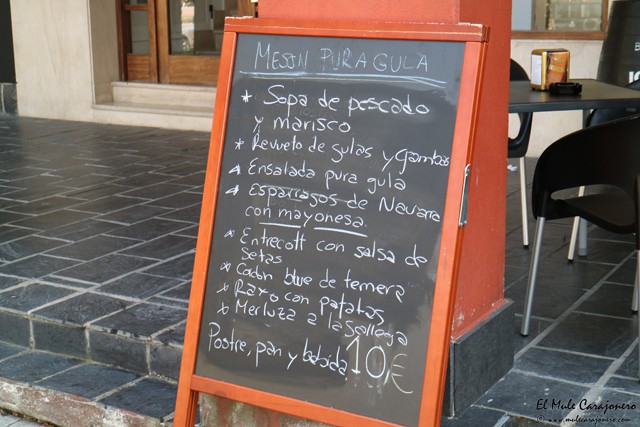 MESON PURA GULA
* Sopa de pescado
y marisco
* Revueto de gulas y gambas
* Ensalada pura gula
* Esparragos de Navarra
con mayonesa.
* Entrecott con salsa de
setas
* Codon blue de ternera
* Raxo con patatas
* Merluza a la Gallega
Postre, pan y bebida 10€
El Mule Carajonero
© www.mulecarajonero.com